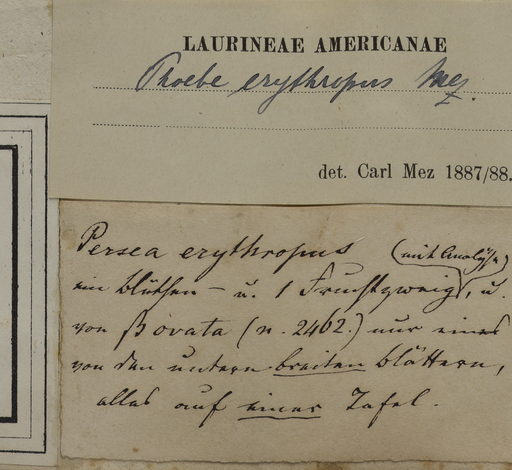 LAURINEAE AMERICANAE
Phoebe erythropus Mez.
det. Carl Mez 1887/88.
Persea erythropus (mit Analyse)
ein Blüthen - u. 1 Fruchtzweig, u.
von β ovata (n. 2462.) nur eines
von den untern breiten Blättern,
alles auf einer Tafel.